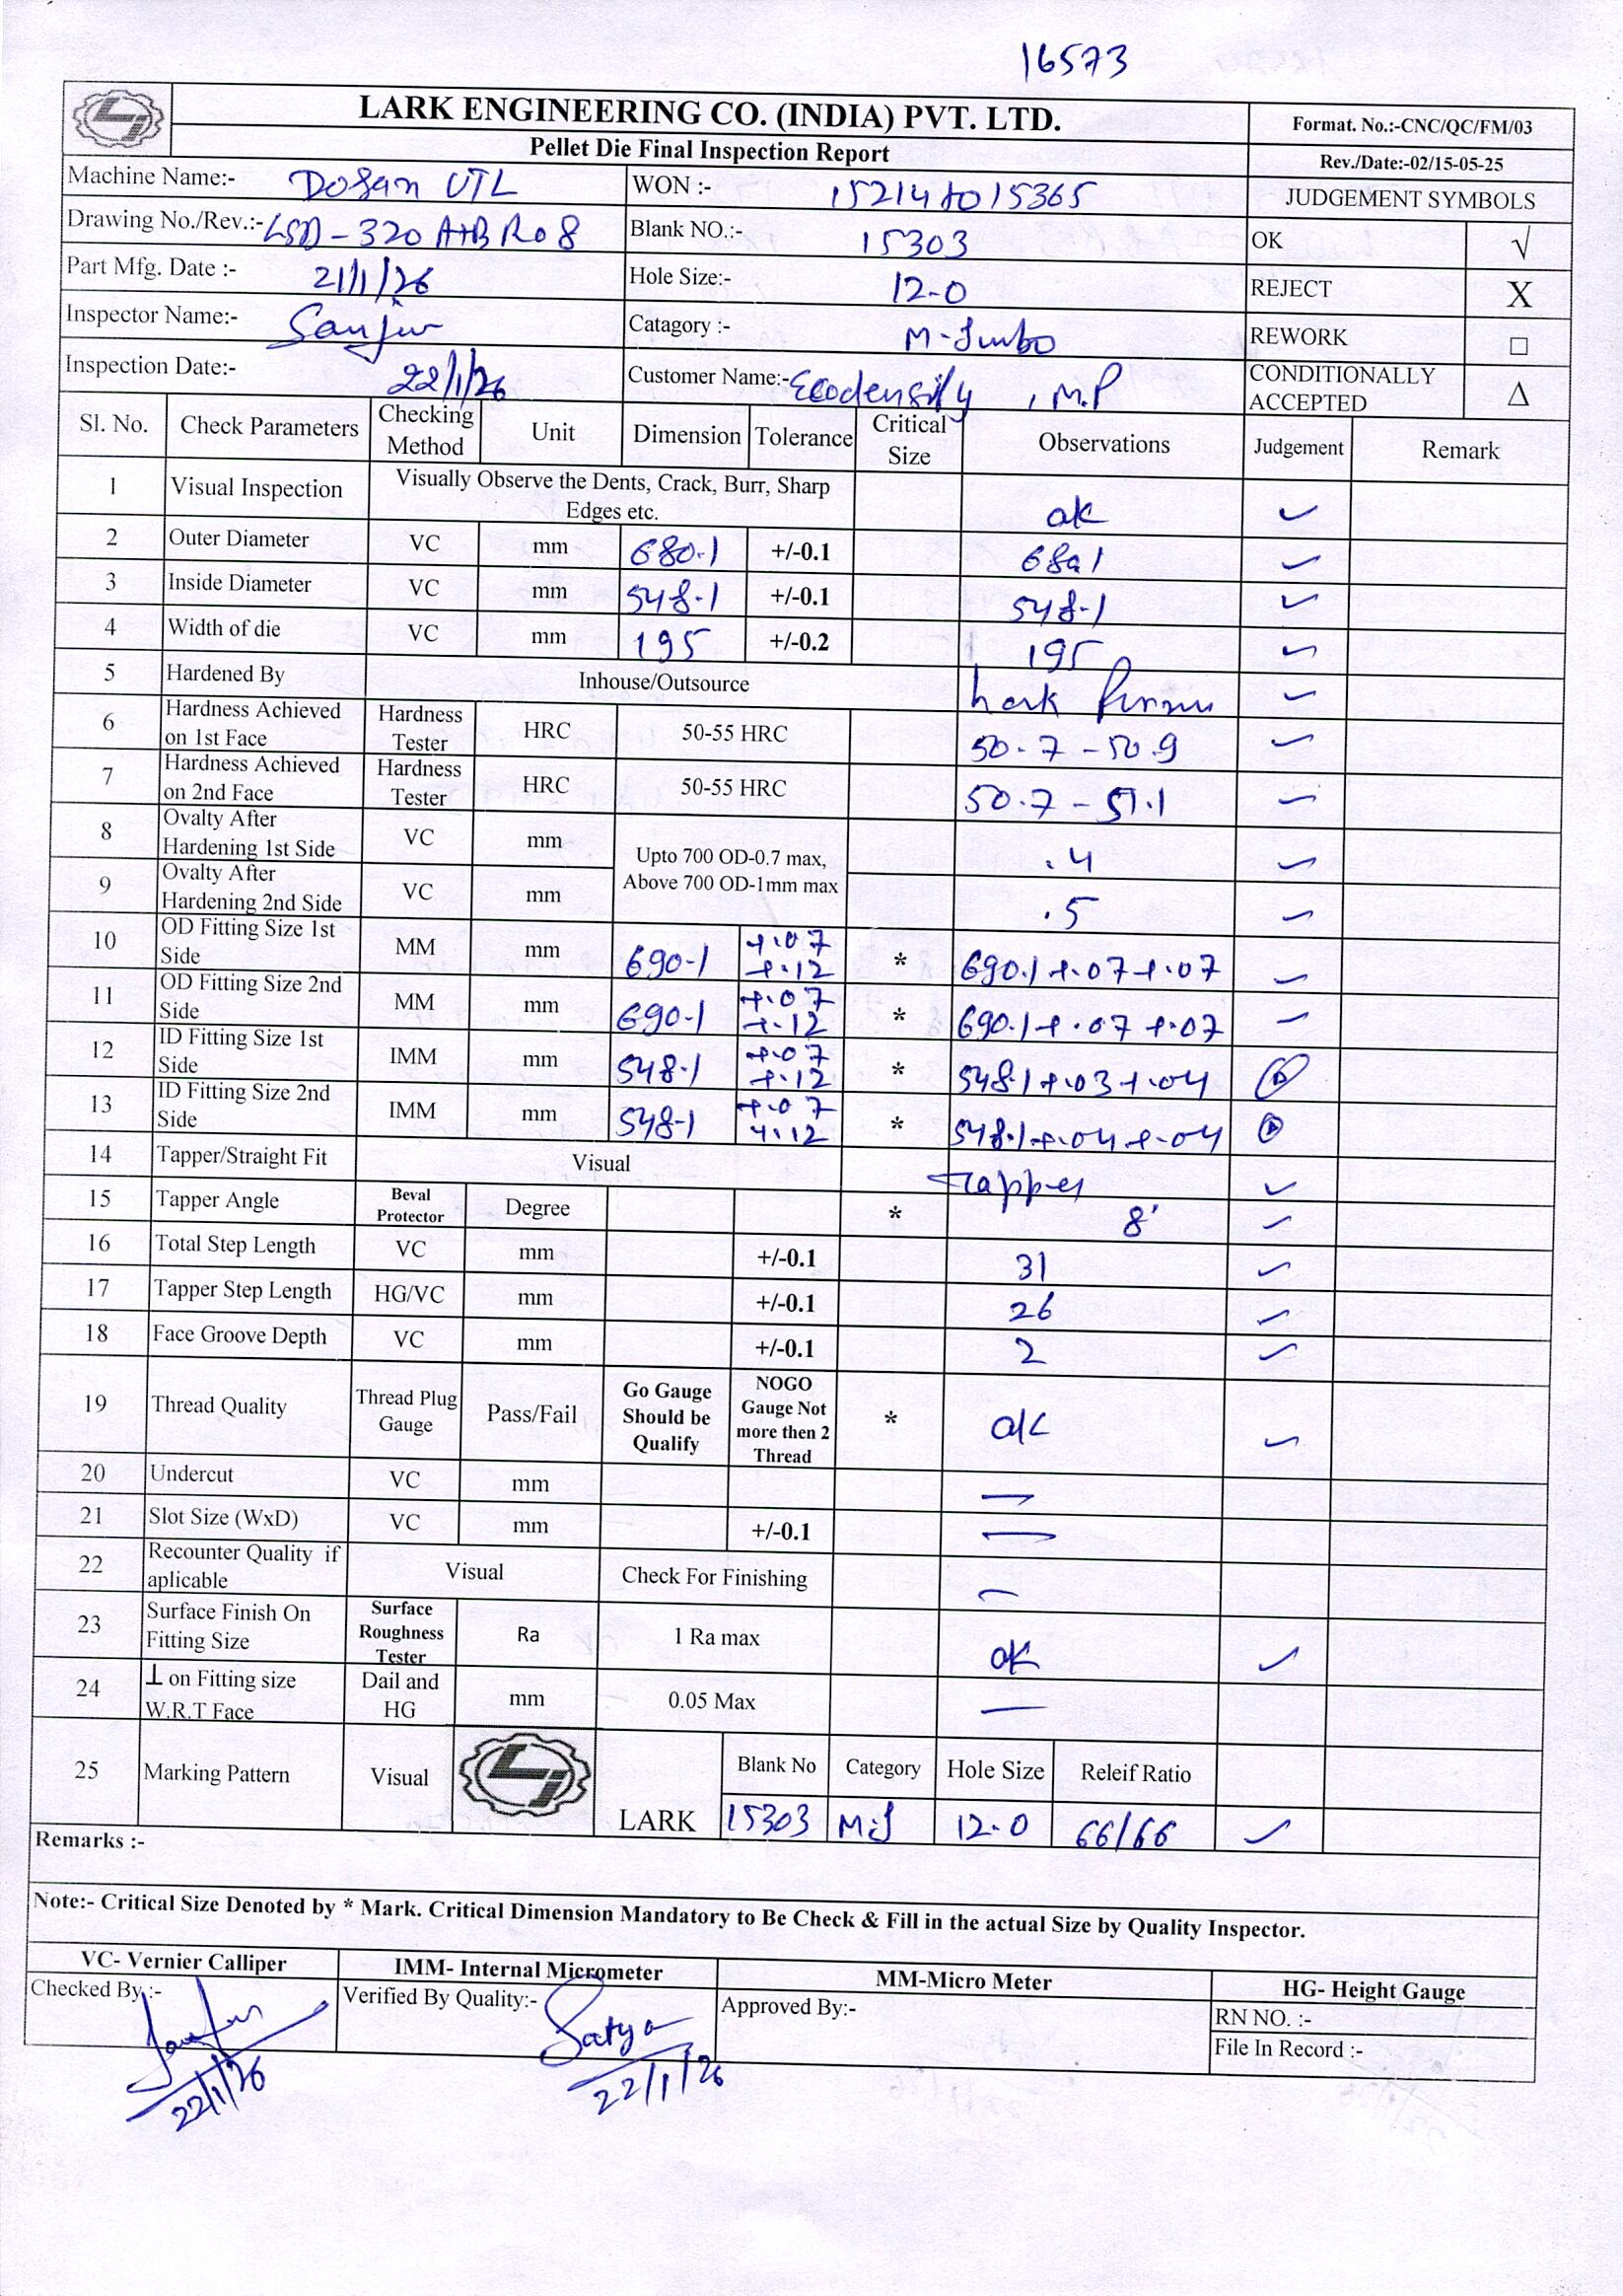 16573
LARK ENGINEERING CO. (INDIA) PVT. LTD.
Pellet Die Final Inspection Report
Format. No.:-CNC/QC/FM/03
Rev./Date:-02/15-05-25
Machine Name:- Dosan VTL WON :- 15214 to 15365 JUDGEMENT SYMBOLS
Drawing No./Rev.:- LSD-320 A+B R08 Blank NO.:- 15303 OK √
Part Mfg. Date :- 21/1/26 Hole Size:- 12-0 REJECT X
Inspector Name:- Sanjiv Catagory :- M-Jumbo REWORK □
Inspection Date:- 22/1/26 Customer Name:- Ecodensify , M.P CONDITIONALLY ACCEPTED Δ
Sl. No. Check Parameters Checking Method Unit Dimension Tolerance Critical Size Observations Judgement Remark
1 Visual Inspection Visually Observe the Dents, Crack, Burr, Sharp Edges etc. ok ✓
2 Outer Diameter VC mm 680.1 +/-0.1 680.1 ✓
3 Inside Diameter VC mm 548.1 +/-0.1 548.1 ✓
4 Width of die VC mm 195 +/-0.2 195 ✓
5 Hardened By Inhouse/Outsource Lark ✓
6 Hardness Achieved on 1st Face Hardness Tester HRC 50-55 HRC 50.7 - 50.9 ✓
7 Hardness Achieved on 2nd Face Hardness Tester HRC 50-55 HRC 50.7 - 51.1 ✓
8 Ovalty After Hardening 1st Side VC mm Upto 700 OD-0.7 max, Above 700 OD-1mm max .4 ✓
9 Ovalty After Hardening 2nd Side VC mm .5 ✓
10 OD Fitting Size 1st Side MM mm 690.1 +.07 +.12 * 690.1 +.07 +.07 ✓
11 OD Fitting Size 2nd Side MM mm 690.1 +.07 +.12 * 690.1 +.07 +.07 ✓
12 ID Fitting Size 1st Side IMM mm 548.1 +.07 +.12 * 548.1 +.03 +.04
13 ID Fitting Size 2nd Side IMM mm 548.1 +.07 +.12 * 548.1 +.04 +.04
14 Tapper/Straight Fit Visual Tapper ✓
15 Tapper Angle Beval Protector Degree * 8' ✓
16 Total Step Length VC mm +/-0.1 31 ✓
17 Tapper Step Length HG/VC mm +/-0.1 26 ✓
18 Face Groove Depth VC mm +/-0.1 2 ✓
19 Thread Quality Thread Plug Gauge Pass/Fail Go Gauge Should be Qualify NOGO Gauge Not more then 2 Thread * ok ✓
20 Undercut VC mm —
21 Slot Size (WxD) VC mm +/-0.1 —
22 Recounter Quality if aplicable Visual Check For Finishing —
23 Surface Finish On Fitting Size Surface Roughness Tester Ra 1 Ra max ok ✓
24 ⊥ on Fitting size W.R.T Face Dail and HG mm 0.05 Max —
25 Marking Pattern Visual LARK Blank No Category Hole Size Releif Ratio
15303 M.J 12.0 66/66 ✓
Remarks :-
Note:- Critical Size Denoted by * Mark. Critical Dimension Mandatory to Be Check & Fill in the actual Size by Quality Inspector.
VC- Vernier Calliper IMM- Internal Micrometer MM-Micro Meter HG- Height Gauge
Checked By :- Verified By Quality:- Satya Approved By:- RN NO. :-
File In Record :-
22/1/26 22/1/26